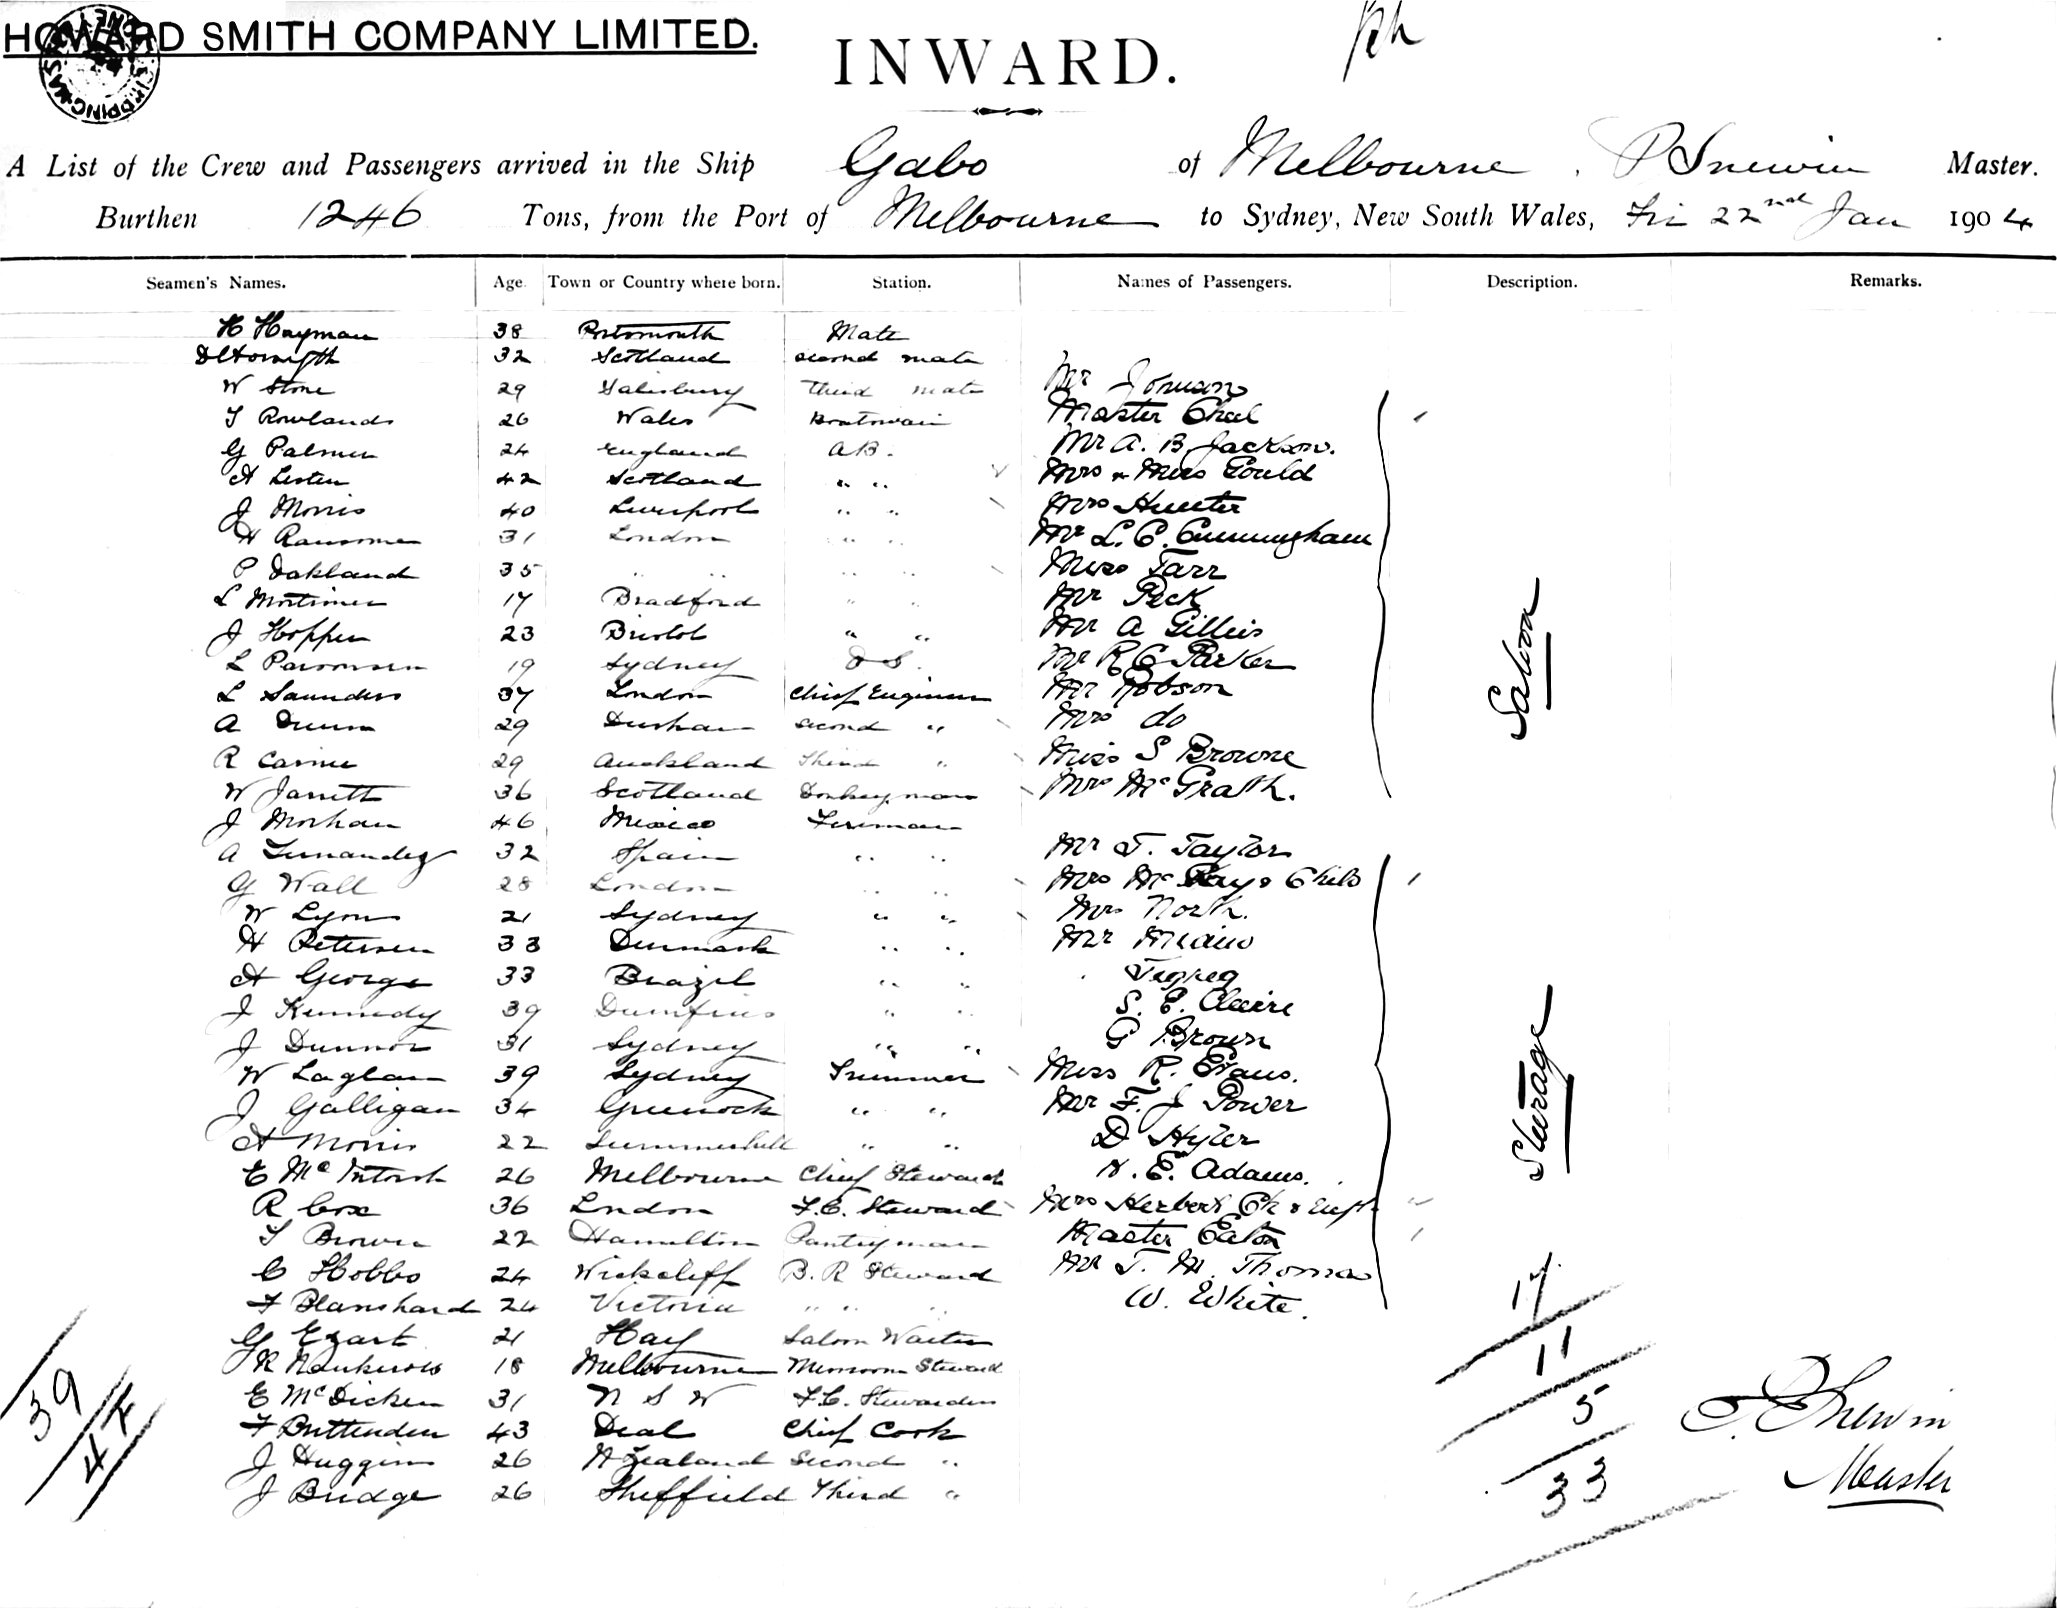 HOWARD SMITH COMPANY LIMITED.
INWARD.
A List of the Crew and Passengers arrived in the Ship Gabo of Melbourne, P Snewin Master.
Burthen 1246 Tons, from the Port of Melbourne to Sydney, New South Wales, Fri 22nd Jan 1904
Seamen's Names. Age. Town or Country where born. Station. Names of Passengers. Description. Remarks.
H Hayman 38 Portsmouth Mate
32 Scotland second mate
W Stone 29 Salisbury third mate Mr
T Rowlands 26 Wales Boatswain Master
G Palmer 24 England AB. Mr A. B. Jackson.
A Lester 42 Scotland " " Mrs & Miss Gould
J Morris 40 Liverpool " " Mrs Hunter
H Ransome 31 London " " Mr L. C. Cunningham
P Oakland 35 " " " " Miss Tarr
L Mortimer 17 Bradford " " Mr Peck
J Hopper 23 Bristol " " Mr A Gillies
L 19 Sydney O S. Mr R C Parker
L Saunders 37 London Chief Engineer Mr Robson
A Dunn 29 Durham second " Mrs do
R 29 Auckland Third " Miss S Browne
W Jarrett 36 Scotland Donkeyman Mrs McGrath.
J 46 Mexico Fireman
A Fernandez 32 Spain " " Mr T. Taylor
G Wall 28 London " " Mrs Child
W Lyons 21 Sydney " " Mrs North.
H Petersen 33 Denmark " " Mr
A George 33 Brazil " "
J Kennedy 39 Dumfries " " S. E. Claire
J 31 Sydney " " G Brown
W 39 Sydney Trimmer Miss R. Evans.
J Galligan 34 Greenock " " Mr F. J Power
A Morris 22 Summerhill " " D Hyter
E McIntosh 26 Melbourne Chief Steward E. Adams.
R Cox 36 London F.C. Steward Mrs Herbert Ch &
T Brown 22 Hamilton Pantryman Master Eaton
C Hobbs 24 Wickcliff B. R Steward Mr T. M. Thomas
F Blanshard 24 Victoria " " " W. White.
G Ezart 21 Hay Saloon Waiter
R 18 Melbourne Messroom Steward
E McDicken 31 N S W F.C. Stewardess
F Buttenden 43 Deal Chief Cook
J Huggins 26 N Zealand Second "
J Bridge 26 Sheffield Third "
Saloon
Sturage
39
44
17
11
5
33
P Snewin
Master